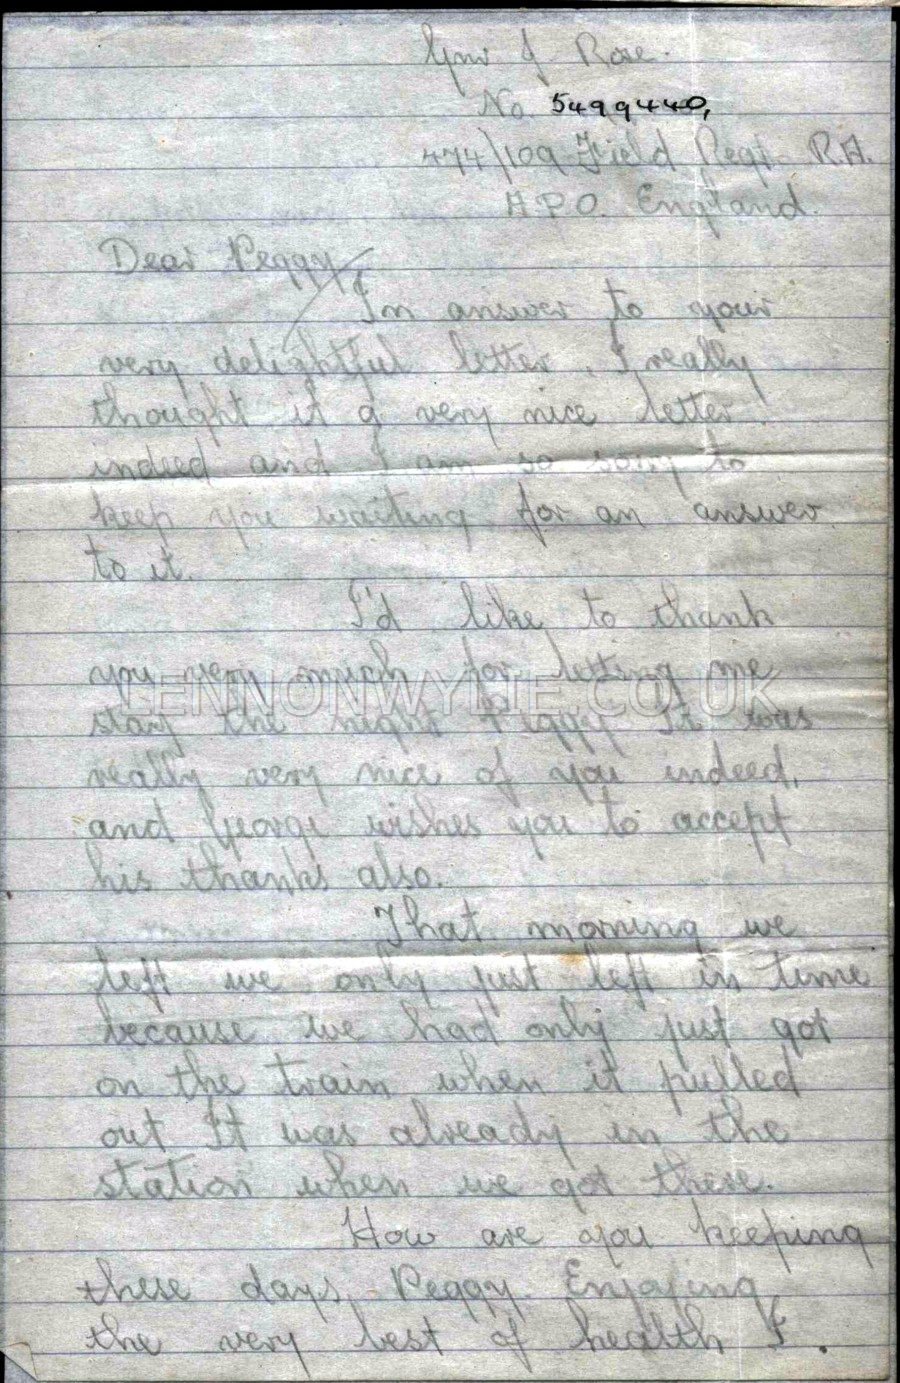 Gnr J. Rose.
No 5499440,
474/109 Field Regt. R.A.
A.P.O. England.
Dear Peggy,
In answer to your
very delightful letter. I really
thought it a very nice letter
indeed and I am so sorry to
keep you waiting for an answer
to it.
I'd like to thank
you very much for letting me
LENNONWYLIE.CO.UK
stay the night Peggy It was
really very nice of you indeed,
and George wishes you to accept
his thanks also.
That morning we
left we only just left in time
because we had only just got
on the train when it pulled
out It was already in the
station when we got there.
How are you keeping
these days, Peggy. Enjoying
the very best of health